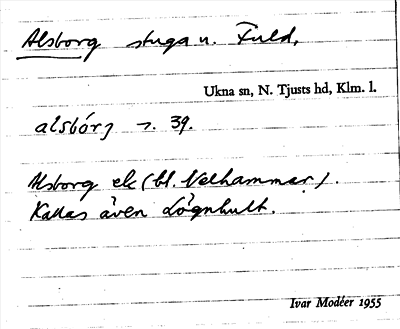 Alsborg stuga u. Fuld,
Ukna sn, N. Tjusts hd, Klm. l.
alsbórj 7. 39.
Alsborg ek (bl. Valhammar).
Kallas även Lögnhult.
Ivar Modéer 1955